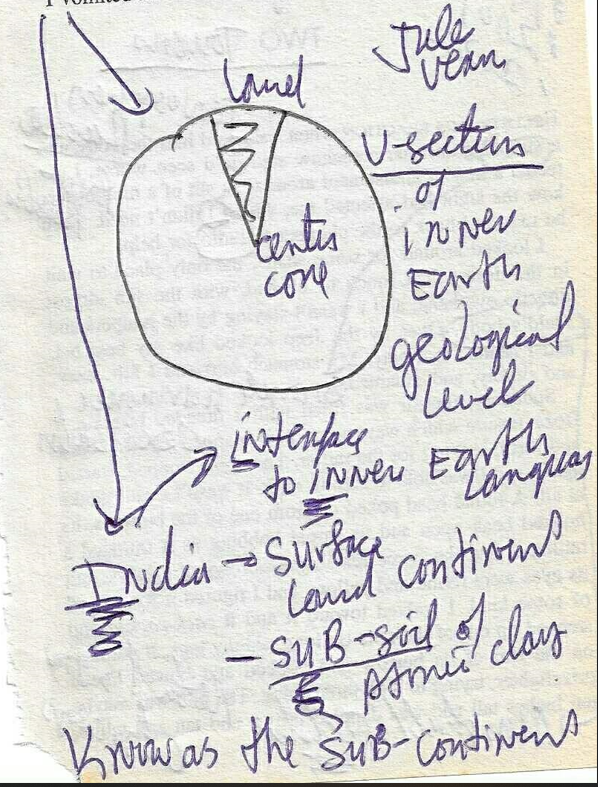 I vomited
Jule
Vern
Land
V-section
of
inner
Earth
geological
level
center
core
interface
to inner Earth
Languages
India → Surface
Land continent
- SUB-soil of
Atomic clay
Know as the SUB-continent